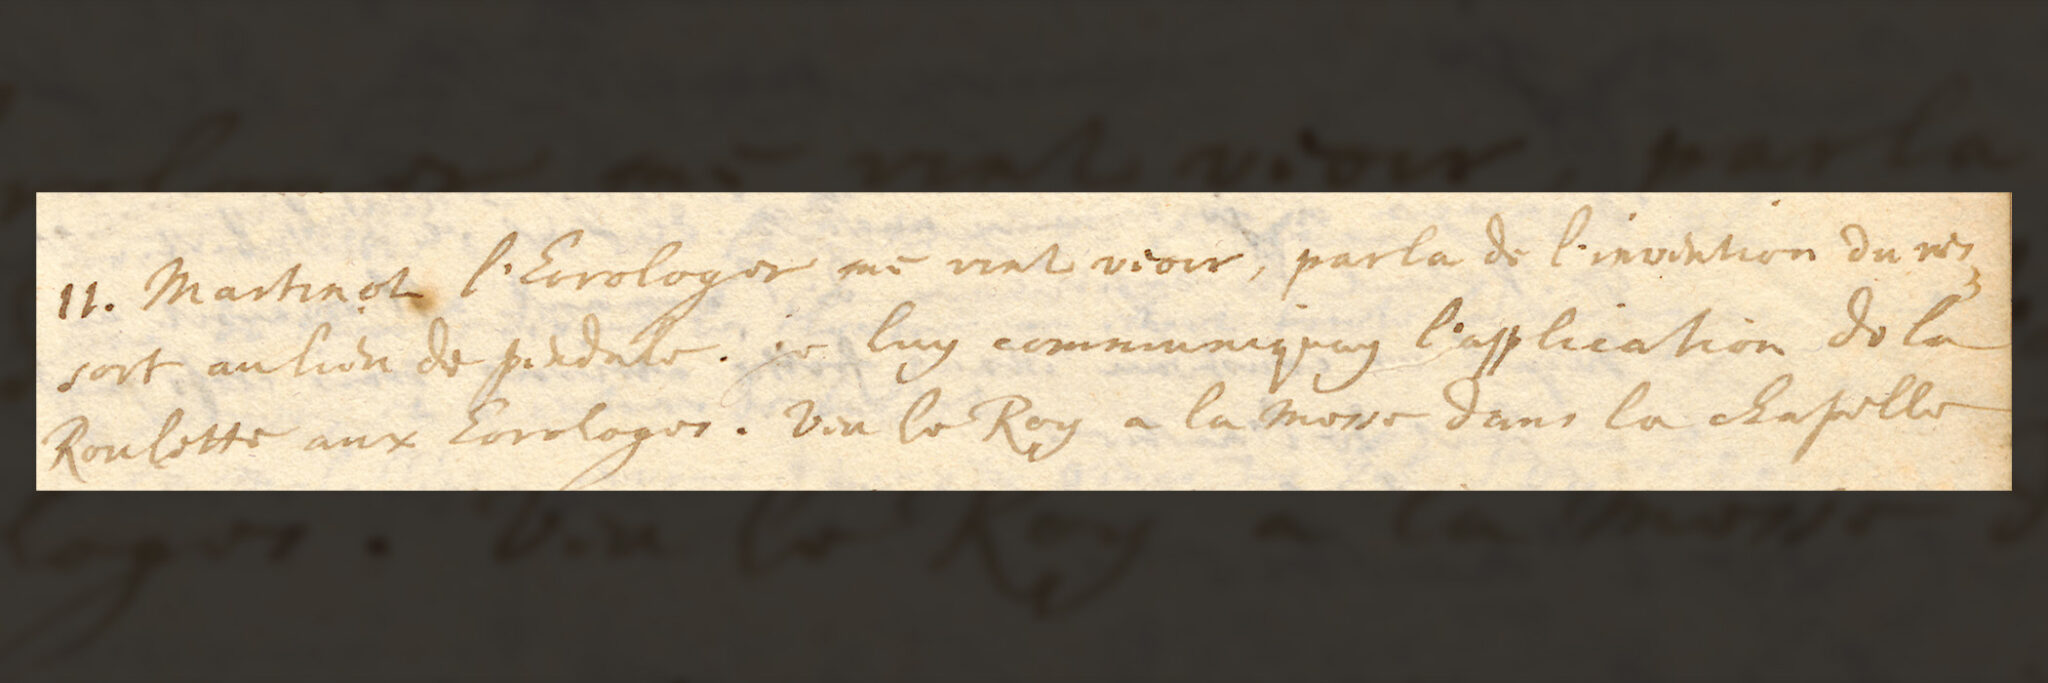 11. Martinot l'Eorologer me vint veoir, parla de l'invention du res
sort au lieu de pendule. je luy communiquay l'application de la
Roulette aux Eorologes. Veu le Roy a la Messe dans la chapelle